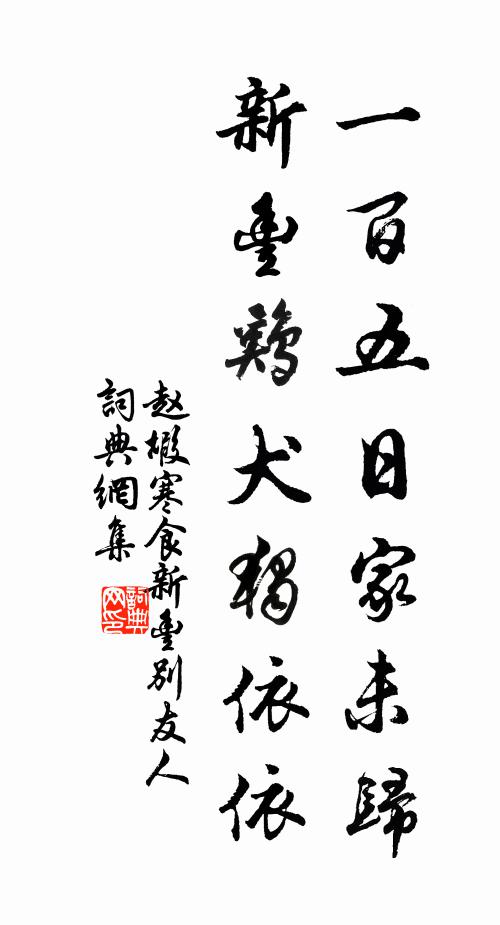 一百五日家未歸
新豐鷄犬獨依依
赵嘏寒食新豐別友人
詞典網集
詞典网印